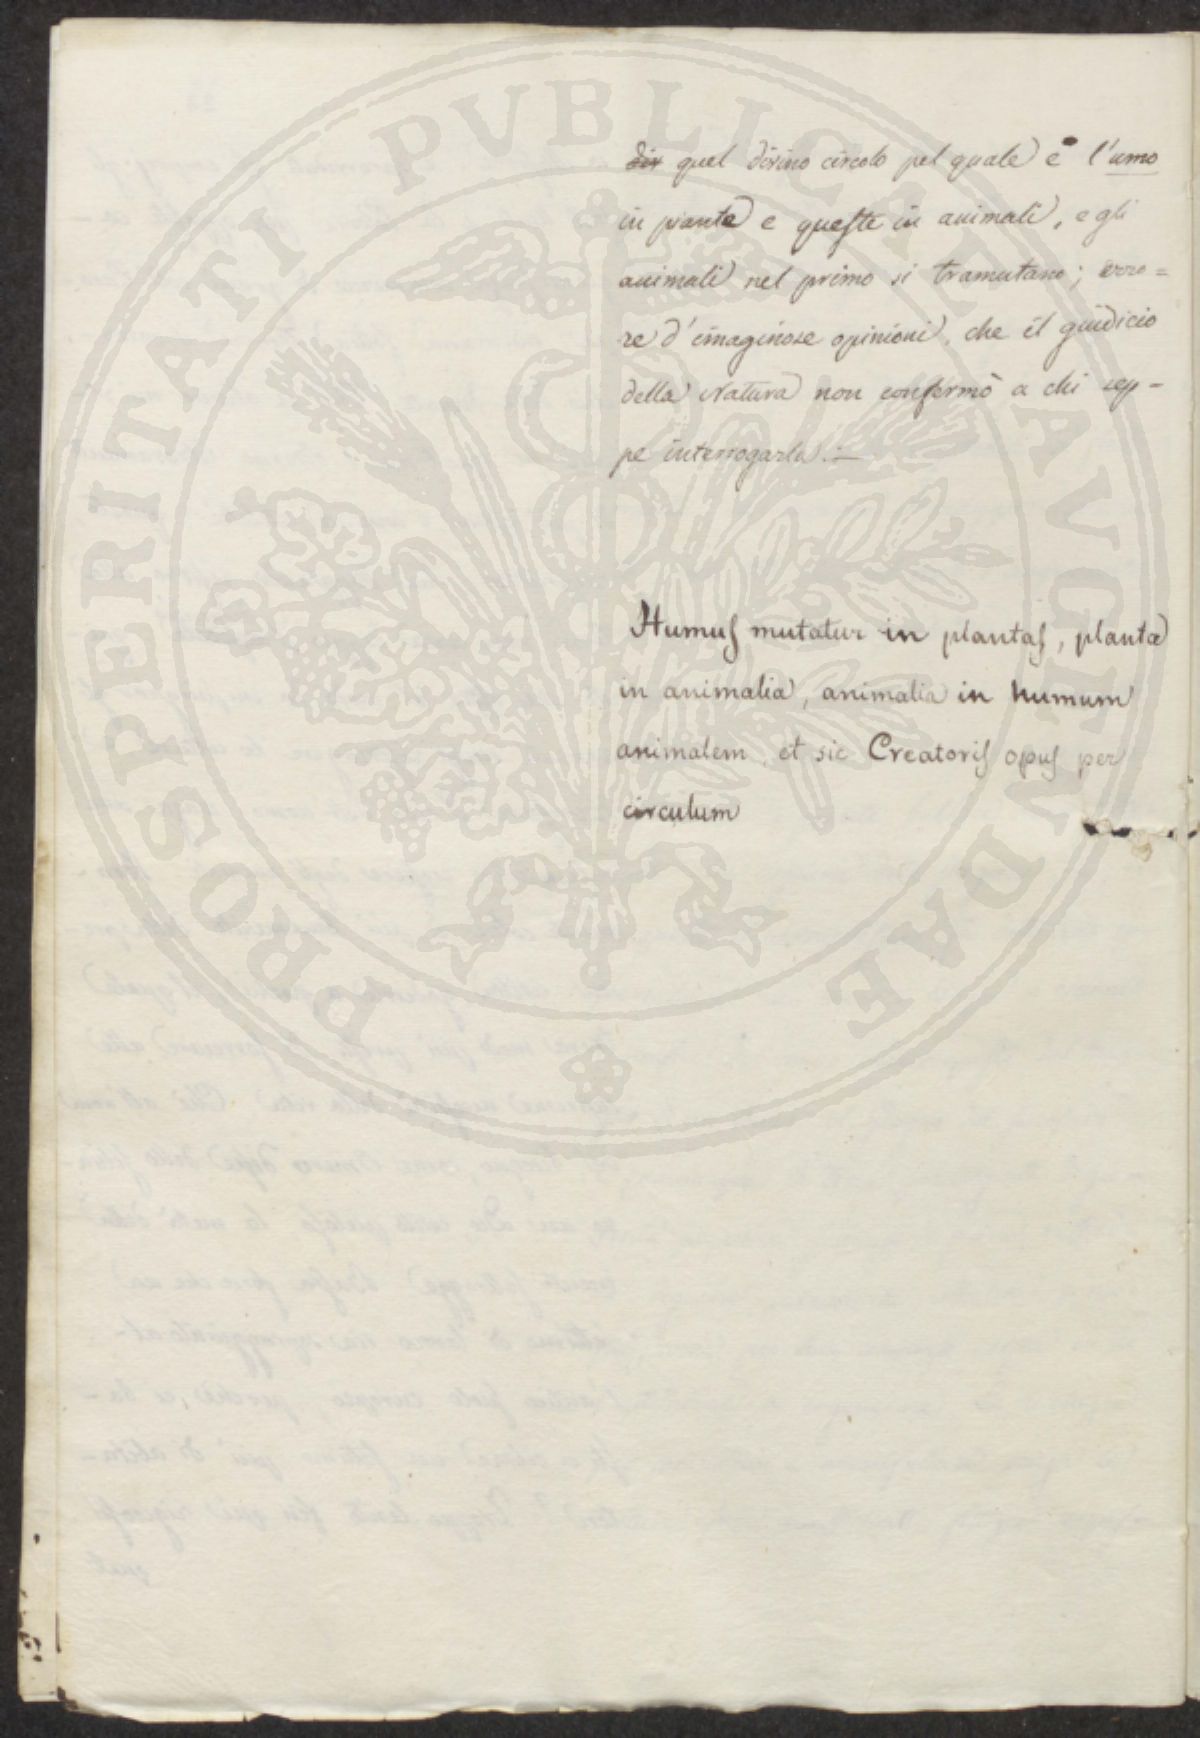 PROSPERITATI PVBLICAE AVGENDAE
~~dir~~ quel divino circolo pel quale è l'umo
in piante e queste in animali, e gli
animali nel primo si tramutano; erro=
re d'imaginose opinioni, che il giudicio
della Natura non confermò a chi sep-
pe interrogarla.=
Humus mutatur in plantas, plantæ
in animalia, animalia in humum
animalem, et sic Creatoris opus per
circulum